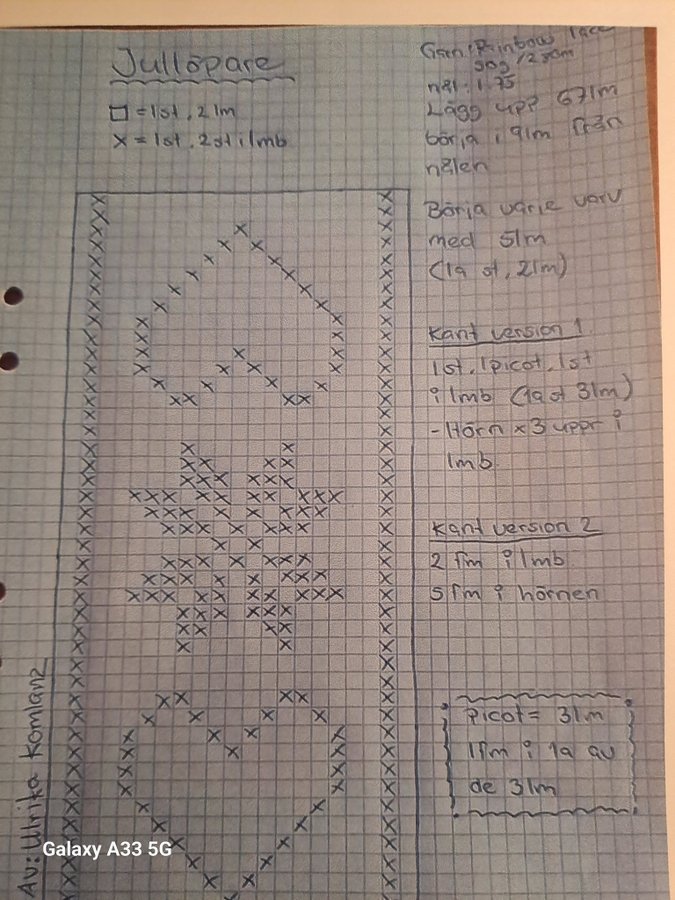 Jullöpare
□ = 1st, 2lm
x = 1st, 2st i lmb
Garn: Rainbow lace
50g/280m
nål: 1.75
Lägg upp 67lm
börja i 9lm från
nålen
Börja varje varv
med 5lm
(1a st, 2lm)
Kant version 1
1st, 1picot, 1st
i lmb (1a st 3lm)
-Hörn x3 uppr i
lmb
Kant version 2
2 fm i lmb
5 fm i hörnen
Picot= 3lm
1fm i 1a av
de 3lm
Av: Ulrika Komlanz
Galaxy A33 5G